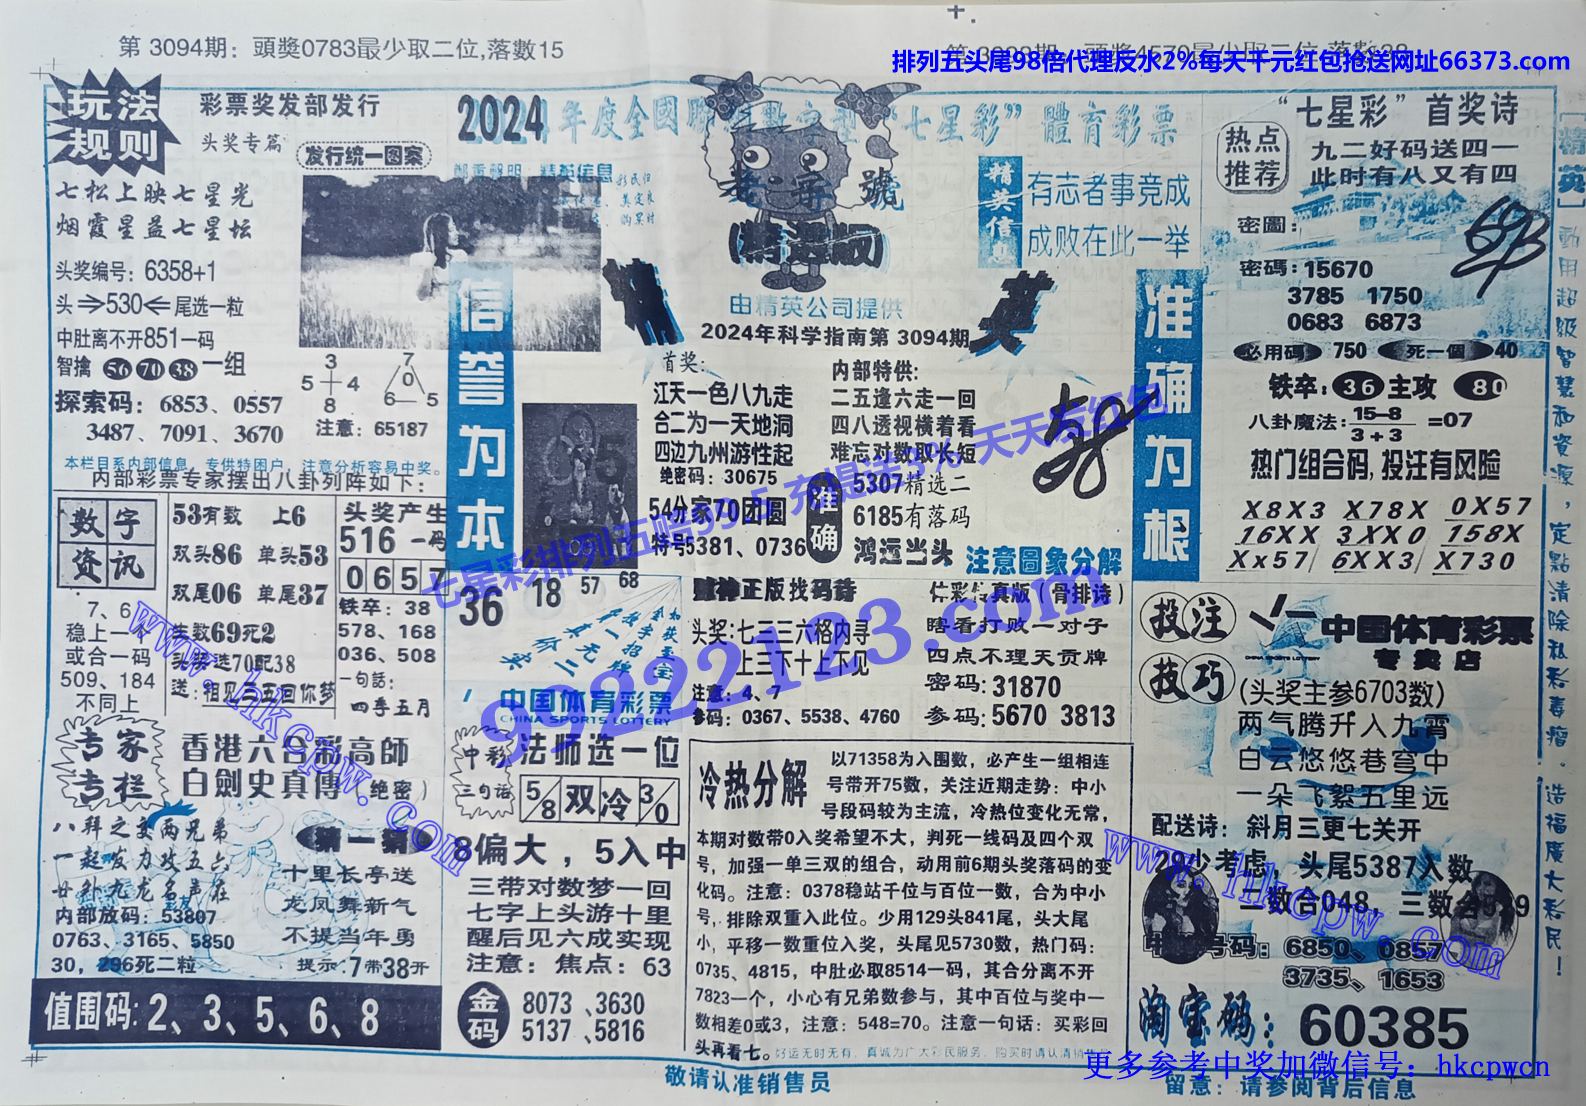 第 3094期：頭獎0783最少取二位,落數15
排列五头尾98倍代理反水2%每天千元红包抢送网址66373.com
玩法
规则
彩票奖发部发行
头奖专篇
发行统一图案
七松上映七星光
烟霞星益七星坛
头奖编号：6358+1
头⇒530⇐尾选一粒
中肚离不开851一码
智擒 56 70 38 一组
探索码：6853、0557
3487、7091、3670
3
5+4
8
7
0
6 5
注意：65187
本栏目系内部信息，专供特困户，注意分析容易中奖。
内部彩票专家摆出八卦列阵如下：
数字
资讯
7、6
稳上一
或合一码
509、184
不同上
53有数 上6
双头86 单头53
双尾06 单尾37
生数69死2
头奖选70配38
送：相见三五回你梦
头奖产生
516 一码
0657
铁卒：38
578、168
036、508
一句話：
四季五月
专家
专栏
香港六合彩高師
白劍史真傳（绝密）
八拜之交两兄弟
一起发力攻五六
廿外九龙名声在
内部放码：53807
0763、3165、5850
30，296死二粒
第一猜
十里长亭送
龙凤舞新气
不提当年勇
提示：7带38开
值围码：2、3、5、6、8
2024年度全國聯
“七星彩”體育彩票
鄭重聲明
精英信息
信誉为本
老字號
(精选版)
由精英公司提供
2024年科学指南第 3094期
精英信息
有志者事竞成
成败在此一举
英
首奖：
江天一色八九走
合二为一天地洞
四边九州游性起
绝密码：30675
54分家70团圆
特号5381、0736
内部特供：
二五逢六走一回
四八透视横着看
难忘对数取长短
准确
5307精选二
6185有落码
鸿运当头
注意圖象分解
36
18
57
68
中国体育彩票
CHINA SPORTS LOTTERY
财神正版找码诗
头奖：七三三六格内寻
上三下十上下见
注意：4、7
参码：0367、5538、4760
体彩传真版（骨排诗）
瞎看打败一对子
四点不理天贡牌
密码：31870
参码：5670 3813
中彩
三句话
法师选一位
5/8 双冷 3/0
8偏大，5入中
三带对数梦一回
七字上头游十里
醒后见六成实现
注意：焦点：63
金码
8073、3630
5137、5816
冷热分解
以71358为入围数，必产生一组相连
号带开75数，关注近期走势：中小
号段码较为主流，冷热位变化无常，
本期对数带0入奖希望不大，判死一线码及四个双
号，加强一单三双的组合，动用前6期头奖落码的变
化码。注意：0378稳站千位与百位一数，合为中小
号，排除双重入此位。少用129头841尾，头大尾
小，平移一数重位入奖，头尾见5730数，热门码：
0735、4815，中肚必取8514一码，其合分离不开
7823一个，小心有兄弟数参与，其中百位与奖中一
数相差0或3，注意：548=70。注意一句话：买彩回
头再看七。
好运无时无有，真诚为广大彩民服务，购买时请认清销售员
敬请认准销售员
热点
推荐
“七星彩”首奖诗
九二好码送四一
此时有八又有四
密圖：
密碼：15670
3785 1750
0683 6873
必用碼 750 死一個 40
铁卒：36 主攻 80
八卦魔法：15-8/3+3=07
热门组合码,投注有风险
X8X3 X78X 0X57
16XX 3XX0 158X
Xx57 6XX3 X730
准确为根
投注
技巧
中国体育彩票
CHINA SPORTS LOTTERY
专卖店
(头奖主参6703数)
两气腾升入九霄
白云悠悠巷穹中
一朵飞絮五里远
配送诗：斜月三更七关开
29少考虑，头尾5387人数
二数合048，三数合
号码：6850、0857
3735、1653
淘宝码：60385
留意：请参阅背后信息
[精英]動用超级智慧和資源，定點清除私彩毒瘤，造福廣大彩民！
七星彩排列五赔99.5 充提送3% 天天有红包
9922123.com
www.hkcpw.com
www.hkcpw.com
更多参考中奖加微信号：hkcpwcn